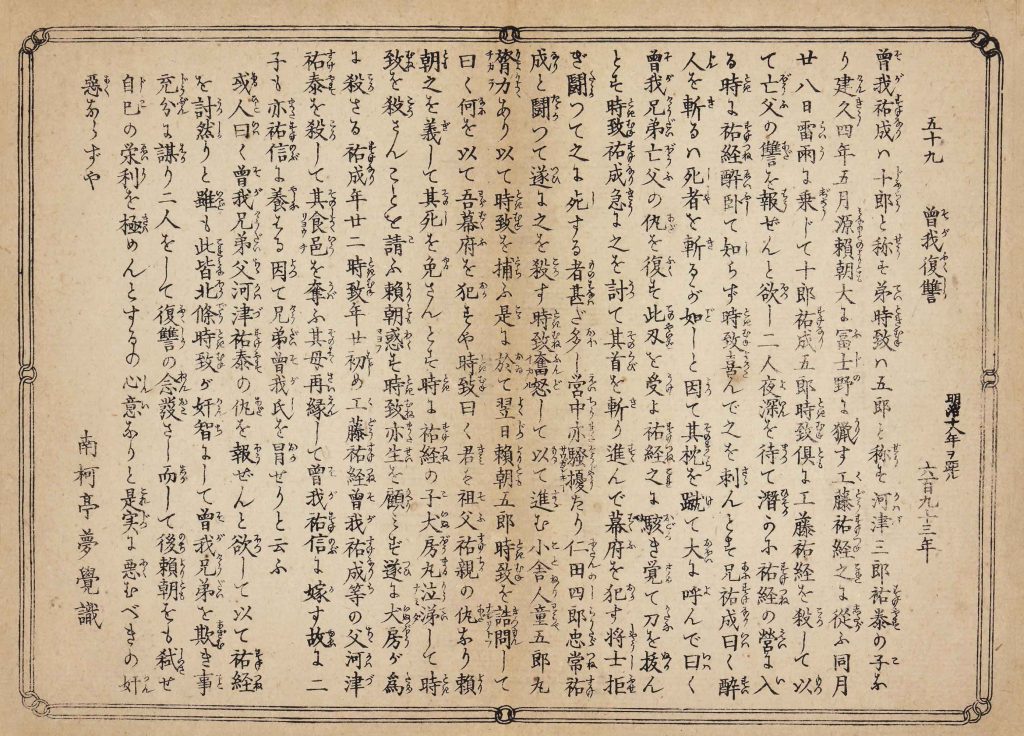 五十九 曾我復讐
明治十八年ヲ距ル 六百九十三年
曾我祐成ハ十郎と称す弟時致ハ五郎と称す河津三郎祐泰の子な
り建久四年五月源頼朝大に冨士野に猟す工藤祐経之に従ふ同月
廿八日雷雨に乗じて十郎祐成五郎時致倶に工藤祐経を殺して以
て亡父の讐を報ぜんと欲し二人夜深を待て潛かに祐経の營に入
る時に祐経酔卧て知らず時致喜んで之を刺んとす兄祐成曰く酔
人を斬るハ死者を斬るが如しと因て其枕を蹴て大に呼んで曰く
曾我兄弟亡父の仇を復す此刃を受よ祐経之に駭き覚て刀を抜ん
とす時致祐成急に之を討て其首を斬り進んで幕府を犯す将士拒
ぎ闘つて之に死する者甚だ多し営中亦騒擾たり仁田四郎忠常祐
成と闘つて遂に之を殺す時致奮怒して以て進む小舎人童五郎丸
膂力あり以て時致を捕ふ是に於て翌日頼朝五郎時致を詰問して
曰く何を以て吾幕府を犯すや時致曰く君を祖父祐親の仇なり頼
朝之を義して其死を免さんとす時に祐経の子大房丸泣涕して時
致を殺さんことを請ふ頼朝惑す時致亦生を顧ミず遂に大房が為
に殺さる祐成年廿二時致年廿初め工藤祐経曾我祐成等の父河津
祐泰を殺して其食邑を奪ふ其母再縁して曾我祐信に嫁す故に二
子も亦祐信に養はる因て兄弟曾我氏を冒せりと云ふ
或人曰く曾我兄弟父河津祐泰の仇を報ぜんと欲して以て祐経
を討然りと雖も此皆北條時政が奸智にして曾我兄弟を欺き事
充分に謀り二人をして復讐の念發さし而して後頼朝をも弑せ
自己の栄利を極めんとするの心意なりと是実に悪むべきの奸
惡ならずや
南柯亭夢覺識